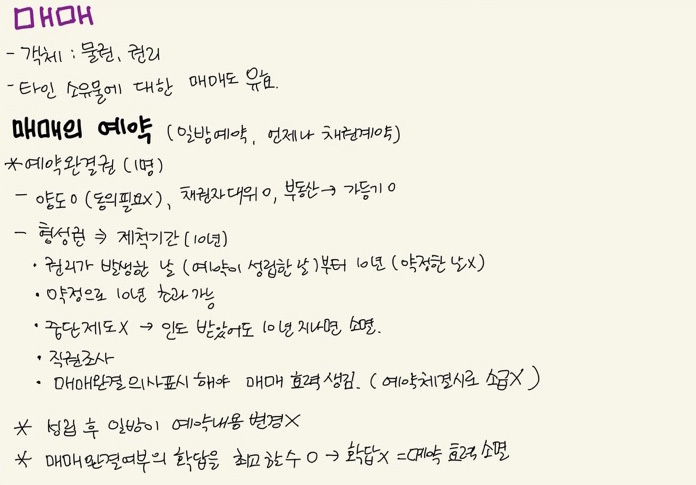 매매
- 객체 : 물권, 권리
- 타인 소유물에 대한 매매도 유효.
매매의 예약 (일방예약, 언제나 채권계약)
* 예약완결권 (1명)
- 양도 O (동의필요X), 채권자대위 O, 부동산 → 가등기 O
- 형성권 ⇒ 제척기간 (10년)
• 권리가 발생한 날 (예약이 성립한 날)부터 10년 (약정한 날X)
• 약정으로 10년 초과 가능
• 중단제도X → 인도 받았어도 10년 지나면 소멸.
• 직권조사
• 매매완결 의사표시 해야 매매 효력생김. (예약체결시로 소급X)
* 성립 후 일방이 예약내용 변경X
* 매매완결여부의 확답을 최고할수 O → 확답X = 예약 효력 소멸